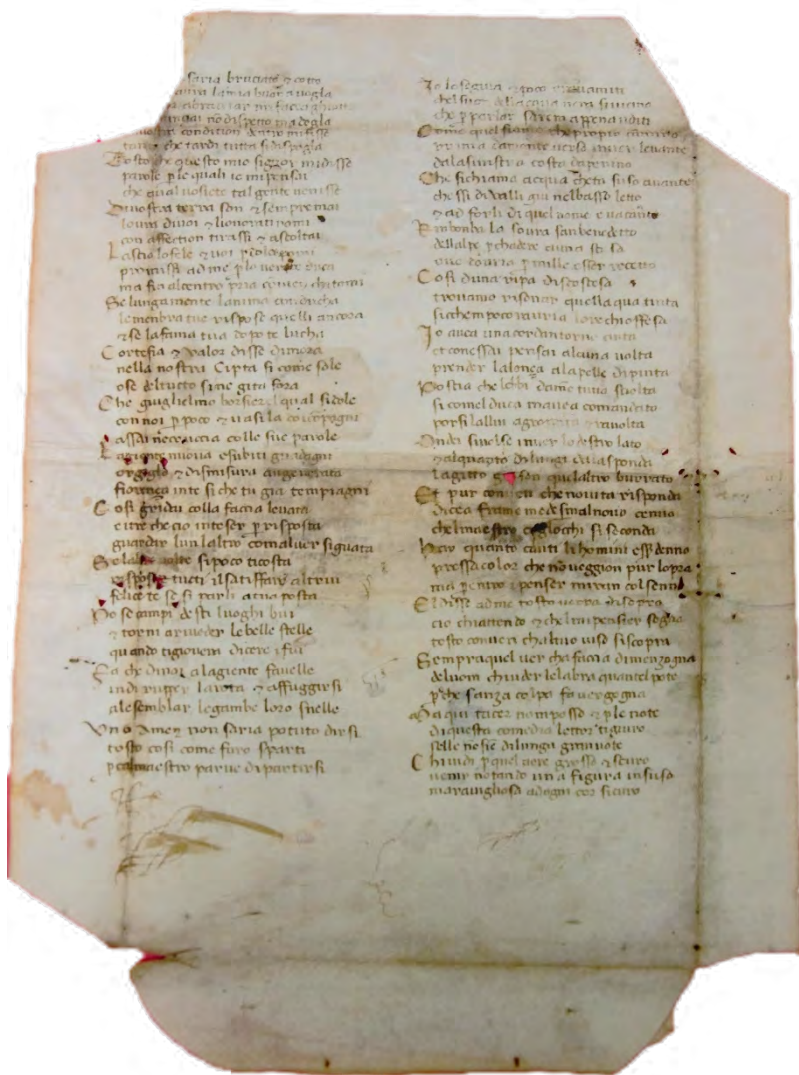 saria bruciato & cotto
la mia buona voglia
mi facea ghiotto
cominciai no dispetto ma doglia
condition dentro mi fisse
tanto che tardi tutta si dispoglia
Tosto che questo mio signor mi disse
parole p le quali io mi pensai
che qual voi siete tal gente venisse
Di vostra terra son & sempre mai
lovra di voi & li honorati nomi
con affection ritrassi & ascoltai
Lascio lo fele & voi p dolci pomi
promessi ad me p lo verace duca
ma fin al centro pria convien chi tomi
Se lungamente lanima conducha
le menbra tue rispose quelli ancora
& se la fama tua dopo te lucha
Cortesia & valor di se dimora
nella nostra Cipta si come sole
o se del tucto si ne gita fora
Che guiglielmo borsier il qual si dole
con noi p poco & va si la coi compagni
assai ne cruccia colle sue parole
La gente nuova e subiti guadagni
orgoglio & dismisura an generata
fiorenza in te si che tu gia tempiagni
Cosi gridai colla facia levata
e i tre che cio inteser p risposta
guardar lun laltro com al ver siguata
Se laltre volte si poco ti costa
risposer tucti il satisffare altrui
felice te se si parli a tua posta
Po se campi desti luoghi bui
& torni a riveder le belle stelle
quando ti giovera dicere i fui
Fa che di noi a la giente favelle
indi rupper la rota & affuggirsi
ale semblar le gambe loro snelle
Un o Amen non saria potuto dirsi
tosto cosi come furo sparti
p cal maestro parve di partirsi
Io lo seguia & poco eravam iti
chel suon dellacqua nera si vicino
che p parlar saremo appena uditi
Come quel fiume che proprio camino
prima da monte veso inver levante
dala sinistra costa dapenino
Che si chiama acqua cheta suso avante
che ssi divalli giu nel basso letto
& ad forli di quel nome e vacante
Rimbomba la sovra san benedetto
dellalpe p chadere ad una scesa
ove dovria p mille esser recetto
Cosi duna ripa discoscesa
trovamo risonar quella qua tinta
si chempoco ra avria lorechia offesa
Io avea una corda intorno cinta
et con essa pensai alcuna volta
prender la lonza ala pelle dipinta
Poscia che lebbi da me tutta sciolta
si comel duca mavea comandato
porsila allui agroppata & ravolta
Ondei si volse inver lo destro lato
& alquanto di lungi dalla sponda
la gitto giuso in quellaltro burrato
Et pur convien che novita risponda
dicea fra me medesmo al novo cenno
chel maestro co glocchi si seconda
Hai quanto cauti li homini esser denno
presso a color che no veggion pur lopra
ma p entro i penser miran col senno
El disse ad me tosto verra di sopra
cio chi attendo & chel tuo pensier sogna
tosto convien chal tuo viso si scopra
Sempra quel ver cha faccia di menzogna
de luom chiuder le labra quantel pote
pche sanza colpa fa vergogna
Ma qui tacer nom posso & p le note
di questa comedia lettor ti giuro
selle no sie di lunga gra vote
Chi vidi p quel aere grosso & scuro
venir notando una figura in suso
maravigliosa ad ogni cor sicuro